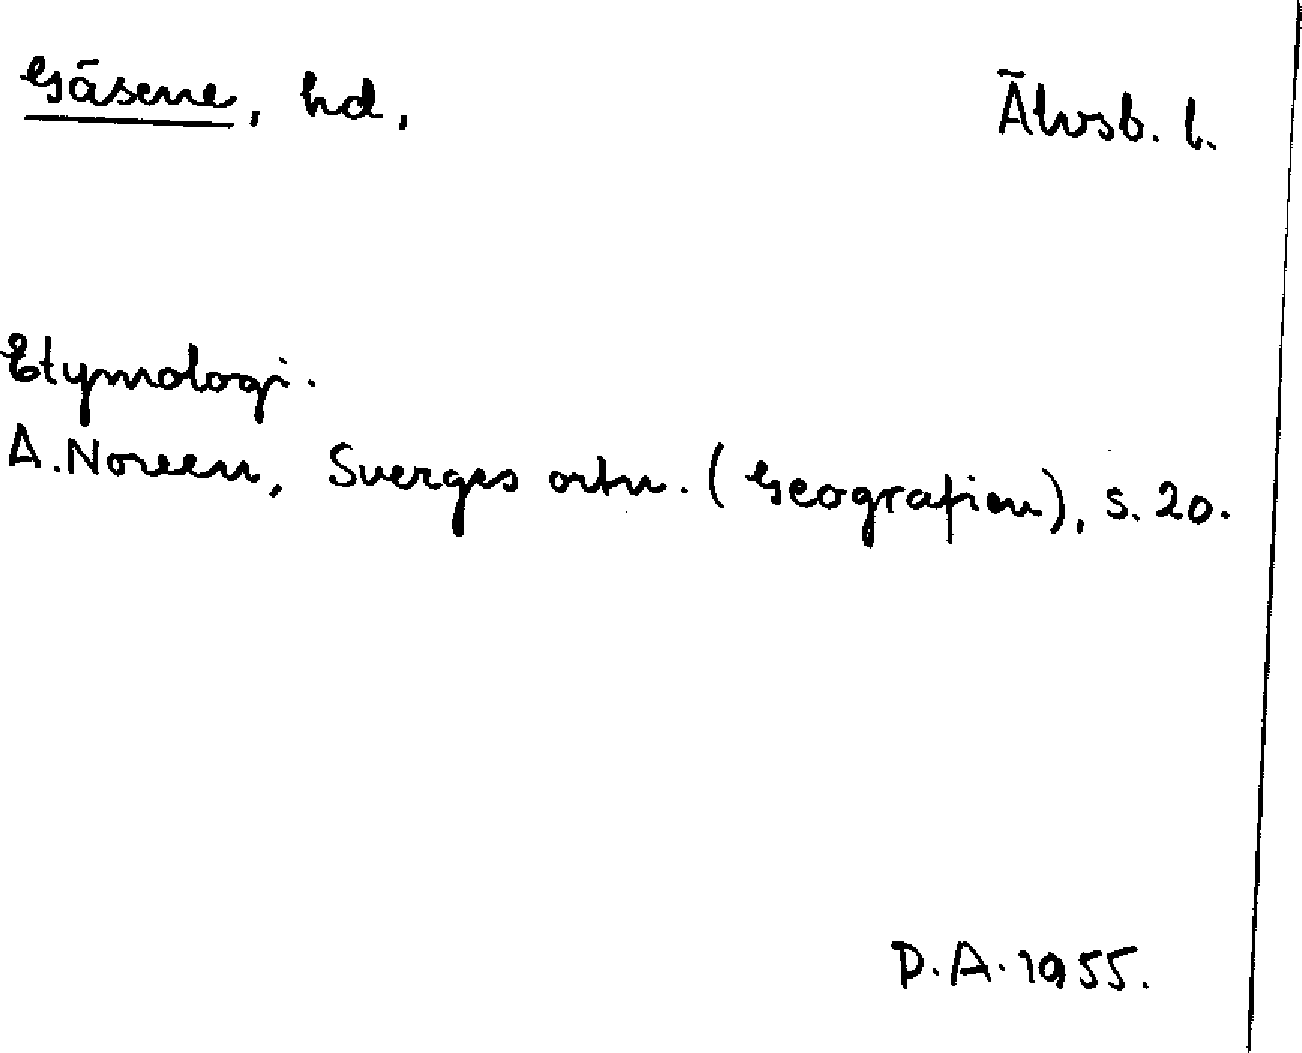 Gäsene, hd, Älvsb. l.
Etymologi.
A. Noreen, Sverges ortn. (Geografien), s. 20.
D.A. 1955.